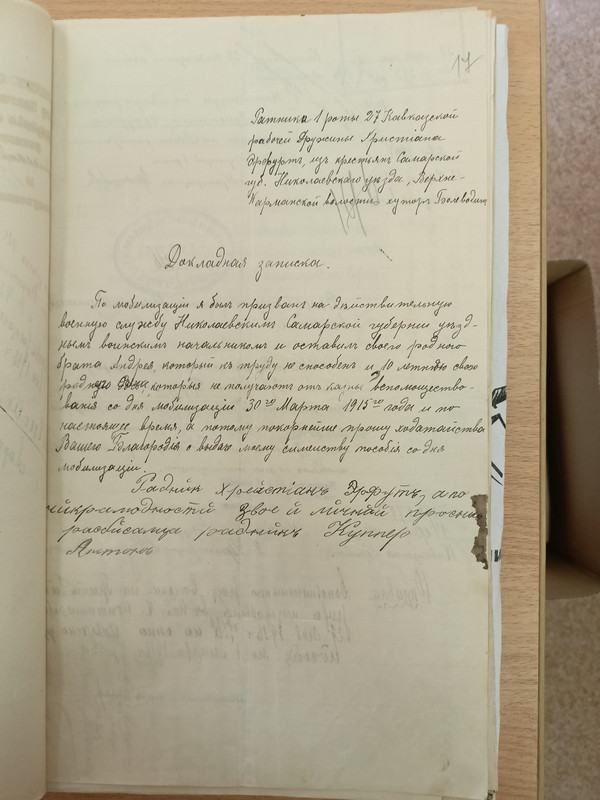 17
Ратника 1 роты 27 Кавказской
рабочей дружины Христіана
Эрфуртъ, изъ крестьянъ Самарской
губ. Николаевскаго уѣзда, Верхне-
Караманской волости хуторъ
Докладная записка.
По мобилизаціи я былъ призванъ на дѣйствительную
военную службу Николаевскимъ Самарской губерніи уѣзд-
нымъ воинскимъ начальникомъ и оставилъ своего родного
брата Андрея, который къ труду не способенъ и 10 летнѣю свою
которыя не получаютъ отъ казны вспомощество-
ванія со дня мобилизаціи 30го Марта 1915го года и по
настоящее время, а потому покорнейше прошу ходатайства
Вашего Благородія о выдачѣ моему семейству пособія со дня
мобилизаціи.
Радникъ Хрестіанъ Эрфутъ, а по
двое й личнай просив
расписалца радникъ Куппер
Антонъ